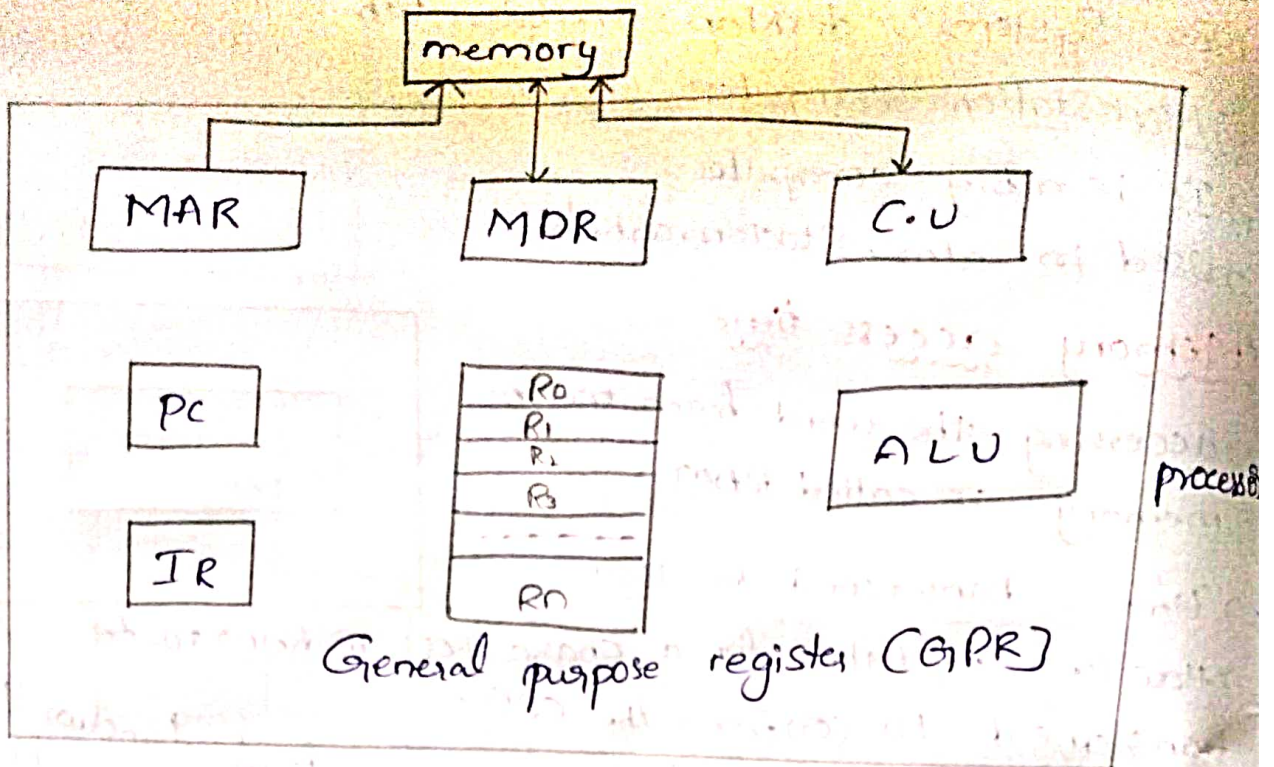 memory
MAR
MDR
C.U
PC
R0
R1
R2
R3
ALU
IR
Rn
General purpose register [GPR]